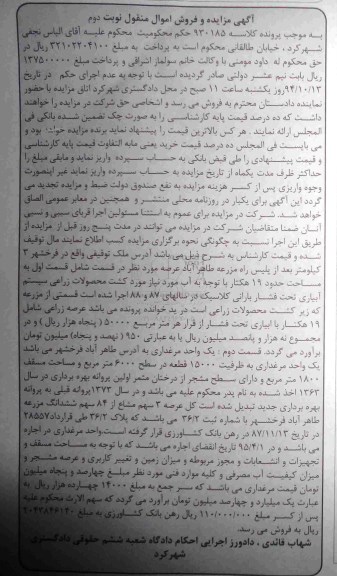 آگهی مزایده و فروش اموال منقول نوبت دوم
به موجب پرونده کلاسه ۹۳۰۱۸۵ حکم محکومیت محکوم علیه آقای الیاس نجفی
شهرکرد ، خیابان طالقانی محکوم است به پرداخت به مبلغ ۳۲۱۰۲۲۰۴۱۰۰ ریال در
حق محکوم له داود مومنی با وکالت خانم سولماز اشراقی و پرداخت مبلغ ۱۳۷۵۰۰۰۰۰
ریال بابت نیم عشر دولتی صادر گردیده است با توجه به عدم اجرای حکم در تاریخ
۹۴/۱۰/۱۳روز یکشنبه ساعت ۱۱ صبح در محل دادگستری شهرکرد اتاق مزایده با حضور
نماینده دادستان محترم به فروش می رسد و اشخاصی حق شرکت در مزایده را خواهند
داشت که ده درصد قیمت پایه کارشناسی را به صورت چک تضمین شده بانکی فی
المجلس ارائه نمایند . هر کس بالاترین قیمت را پیشنهاد نماید برنده مزایده بود و
می بایست فی المجلس ده درصد قیمت خرید یعنی مابه التفاوت قیمت پایه کارشناسی
و قیمت پیشنهادی را طی قبض بانکی به حساب سپرده واریز نماید و مابقی مبلغ را
حداکثر ظرف مدت یکماه از تاریخ مزایده به حساب سپرده واریز نماید غیر اینصورت
وجوه واریزی پس از کسر هزینه مزایده به نفع صندوق دولت ضبط و مزایده تجدید می
گردد این آگهی برای یکبار در روزنامه محلی منتشر و همچنین در معابر عمومی الصاق
خواهد شد. شرکت در مزایده برای عموم به استثنا مسئولین اجرا قربای سببی و نسبی
آنان ضمنا متقاضیان شرکت در مزایده می توانند در مدت پنج روز قبل از مزایده از
طریق این اجرا نسبت به چگونگی نحوه برگزاری مزایده کسب اطلاع نمایند مال توقیف
شده و قیمت کارشناس به شرح ذیل می باشد آدرس ملک توقیفی واقع در فرخشهر ۳
کیلومتر بعد از پلیس راه مزرعه طاهر آباد عرصه مورد نظر در قسمت شامل قسمت اول به
مساحت حدود ۱۹ هکتار با توجه به آب مورد نیاز مورد کشت محصولات زراعی سیستم
آبیاری تحت فشار بارانی کلاسیک در سالهای ۸۷ و ۸۸ اجرا شده است قسمتی از مزرعه
که زیر کشت محصولات زراعی است در ید خوانده پرونده می باشد عرصه زراعی شامل
۱۹ هکتار با آبیاری تحت فشار از قرار هر متر مربع ۵۰۰۰۰ ( پنجاه هزار ریال ) و در
مجموع نه هزار و پانصد میلیون ریال یا به عبارتی ۹۵۰ ( نهصد و پنجاه) میلیون تومان
برآورد می گردد. قسمت دوم : یک واحد مرغداری به آدرس طاهر آباد فرخشهر می باشد
یک واحد مرغداری به ظرفیت ۱۵۰۰۰ قطعه در سطح ۶۰۰۰ متر مربع و مساحت مسقف
۱۸۰۰ متر مربع و دارای سطح مشجر از درختان مثمر اولین پروانه بهره برداری در سال
۱۳۶۳ اخذ شده به نام پدر محکوم علیه می باشد و در سال ۱۳۷۳پروانه قبلی به پروانه
بهره برداری جدید تبدیل شده است کل عرصه ۳ سهم مشاع از ۸۴ سهم ششدانگ مزرعه
طاهر آباد فرخشهر با شماره ثبت ۳۶/۲ می باشد که پلاک ۳۶/۲ طی قرارداد۲۸۵۵۷
در تاریخ ۸۷/۱۱/۱۳ در رهن بانک کشاورزی قرار گرفته است.واحد مرغداری در اجاره
می باشد و در ۹۵/۴/۱ تاریخ انقضای اجاره می باشد که با توجه به مساحت مسقف و
تجهیزات و انشعابات و مجوز مربوطه و میزان زمین و تغییر کاربری و عرصه مشجر و
میزان کیفیت آب مصرفی و کلیه موارد فنی مورد نظر مبلغ چهارصد و پنجاه میلیون
تومان قیمت مرغداری می باشد که سر جمع به مبلغ ۱۴۰۰۰ چهارده هزار ریال به
عبارت یک میلیارد و چهارصد میلیون تومان برآورد می گردد که سهم الارث محکوم علیه
پس از کسر مبلغ ۱۱۰/۰۰۰/۰۰۰ ریال رهن بانک کشاورزی به مبلغ
ریال به فروش می رسد.
شهاب قائدی ، دادورز اجرایی احکام دادگاه شعبه ششم حقوقی دادگستری
شهرکرد